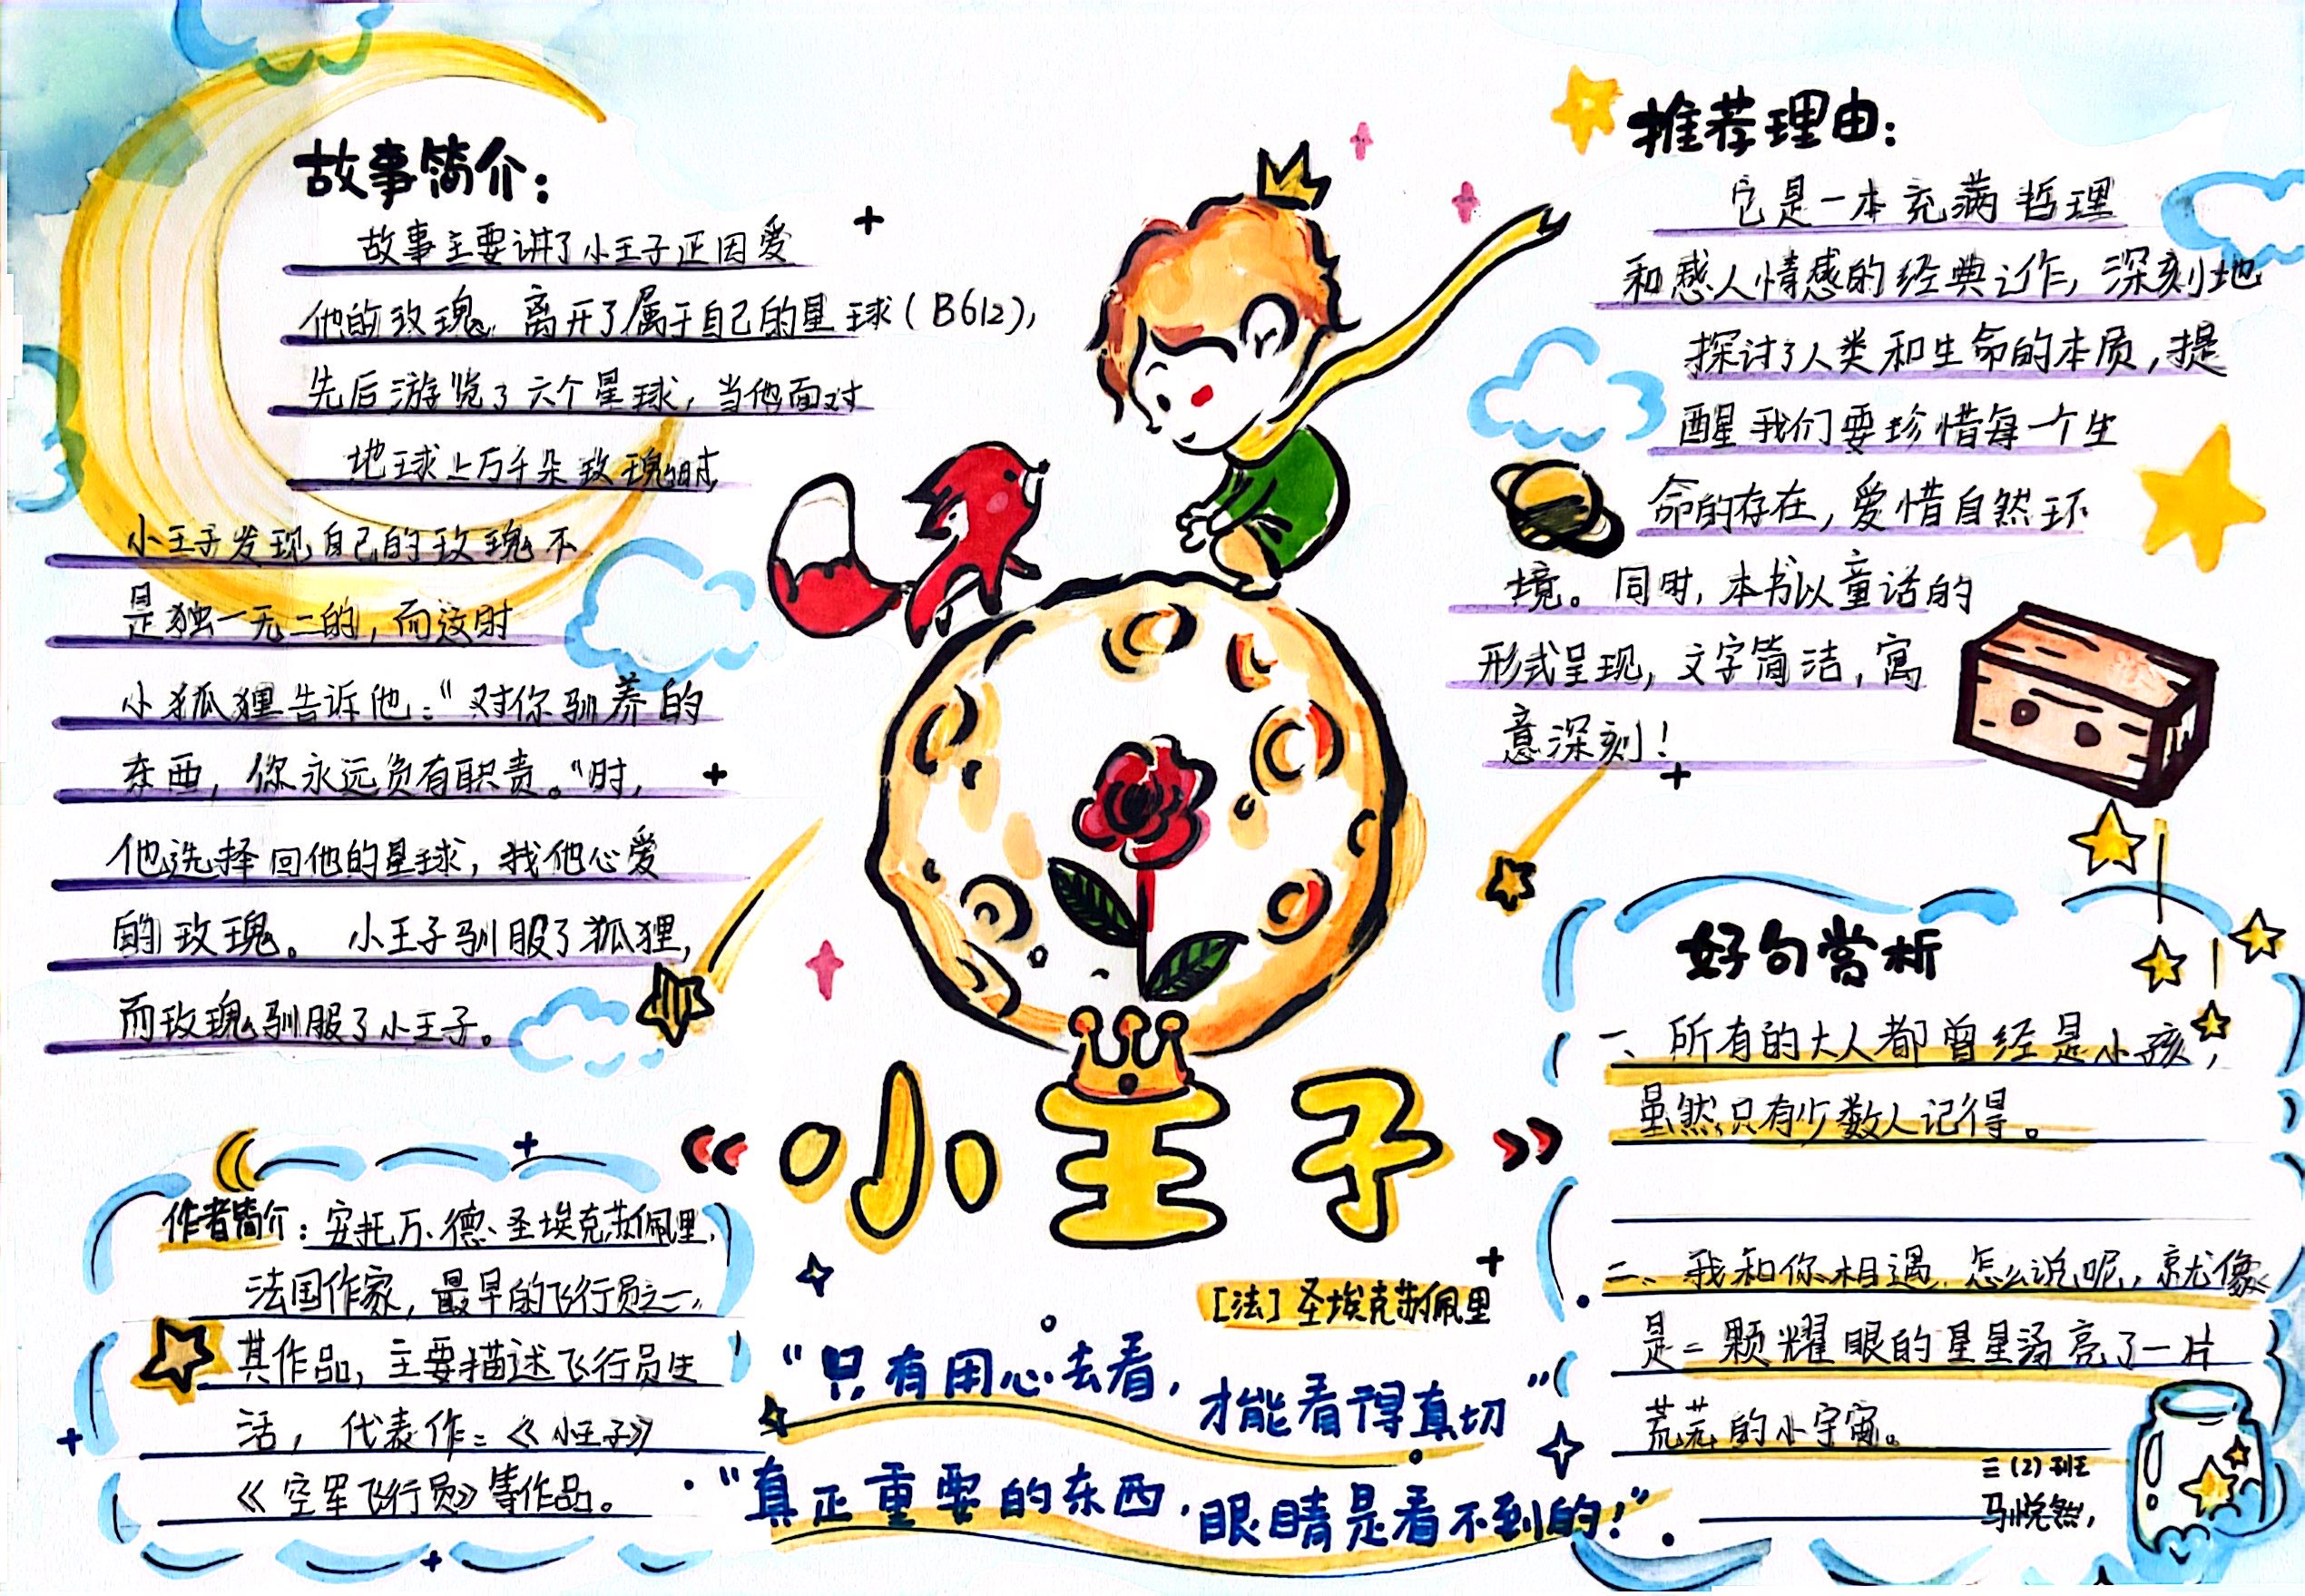 故事简介：
故事主要讲了小王子正因爱
他的玫瑰，离开了属于自己的星球（B612），
先后游览了六个星球，当他面对
地球上万千朵玫瑰时
小王子发现自己的玫瑰不
是独一无二的，而这时
小狐狸告诉他："对你驯养的
东西，你永远负有职责。"时，
他选择回他的星球，找他心爱
的玫瑰。小王子驯服了狐狸，
而玫瑰驯服了小王子。
作者简介：安托万·德·圣埃克苏佩里，
法国作家，最早的飞行员之一，
其作品，主要描述飞行员生
活，代表作：《小王子》
《空军飞行员》等作品。
《小王子》
[法]圣埃克苏佩里
"只有用心去看，才能看得真切"
"真正重要的东西，眼睛是看不到的！"
推荐理由：
它是一本充满哲理
和感人情感的经典之作，深刻地
探讨了人类和生命的本质，提
醒我们要珍惜每一个生
命的存在，爱惜自然环
境。同时，本书以童话的
形式呈现，文字简洁，寓
意深刻！
好句赏析
一、所有的大人都曾经是小孩，
虽然只有少数人记得。
二、我和你相遇，怎么说呢，就像
是二颗耀眼的星星汤亮了一片
荒芜的小宇宙。
三（2）班
马悦然，